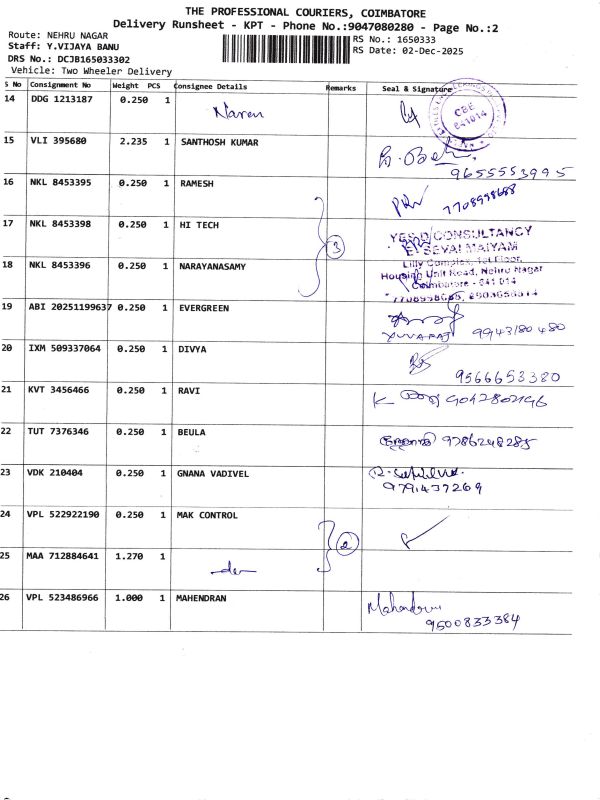 THE PROFESSIONAL COURIERS, COIMBATORE
Delivery Runsheet - KPT - Phone No.:9047080280 - Page No.:2
Route: NEHRU NAGAR
RS No.: 1650333
Staff: Y.VIJAYA BANU
RS Date: 02-Dec-2025
DRS No.: DCJB165033302
Vehicle: Two Wheeler Delivery
S No Consignment No Weight PCS Consignee Details Remarks Seal & Signature
14 DDG 1213187 0.250 1 Naren
CBE 641014
15 VLI 395680 2.235 1 SANTHOSH KUMAR
9655553995
16 NKL 8453395 0.250 1 RAMESH
7708998688
17 NKL 8453398 0.250 1 HI TECH 3
CONSULTANCY
E SEVAI MAIYAM
Lilly Complex, 1st Floor,
18 NKL 8453396 0.250 1 NARAYANASAMY
Housing Unit Road, Nehru Nagar
Coimbatore - 641 014
19 ABI 20251199637 0.250 1 EVERGREEN
YUVARAJ 9943180480
20 IXM 509337064 0.250 1 DIVYA
9566653380
21 KVT 3456466 0.250 1 RAVI
K
22 TUT 7376346 0.250 1 BEULA
9786248285
23 VDK 210404 0.250 1 GNANA VADIVEL
9791437269
24 VPL 522922190 0.250 1 MAK CONTROL
2
25 MAA 712884641 1.270 1 -do-
26 VPL 523486966 1.000 1 MAHENDRAN Mahendran
9500833384